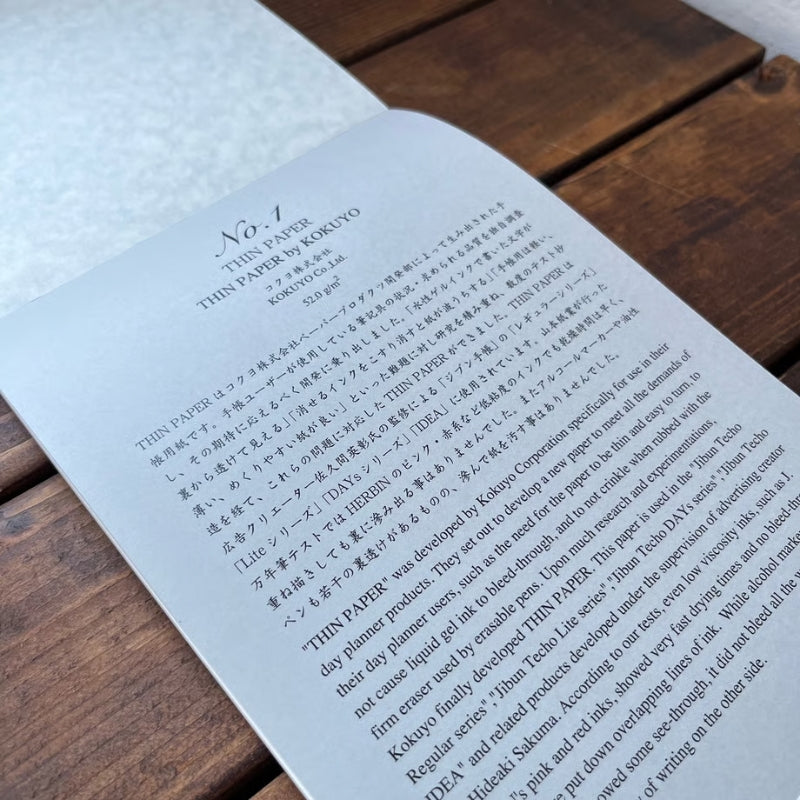 No.1
THIN PAPER
THIN PAPER by KOKUYO
コクヨ株式会社
KOKUYO Co.,Ltd.
52.0 g/m²
THIN PAPER はコクヨ株式会社ペーパープロダクツ開発部によって生み出された手
帳用紙です。手帳ユーザーが使用している筆記具の状況・求められる品質を独自調整
し、その期待に応えるべく開発に乗り出しました。「水性ゲルインクで書いた文字が
裏から透けて見える」「消せるインクをこすり消すと紙が波うちする」「手帳用は軽い、
薄い、めくりやすい紙が良い」といった難題に対し研究を積み重ね、数度のテスト抄
造を経て、これらの問題に対応した THIN PAPER ができました。THIN PAPER は
広告クリエーター佐久間英彰氏の監修による「ジブン手帳」の「レギュラーシリーズ」
「Lite シリーズ」「DAYs シリーズ」「IDEA」に使用されています。山本紙業が行った
万年筆テストでは HERBIN のピンク・赤系など低粘度のインクでも乾燥時間は早く、
重ね描きしても裏に滲み出る事はありませんでした。またアルコールマーカーや油性
ペンも若干の裏透けがあるものの、滲んで紙を汚す事はありませんでした。
"THIN PAPER" was developed by Kokuyo Corporation specifically for use in their
day planner products. They set out to develop a new paper to meet all the demands of
their day planner users, such as the need for the paper to be thin and easy to turn, to
not cause liquid gel ink to bleed-through, and to not crinkle when rubbed with the
firm eraser used by erasable pens. Upon much research and experimentations,
Kokuyo finally developed THIN PAPER. This paper is used in the "Jibun Techo
Regular series","Jibun Techo Lite series","Jibun Techo DAYs series","Jibun Techo
IDEA" and related products developed under the supervision of advertising creator
Hideaki Sakuma. According to our tests, even low viscosity inks, such as J.
pink and red inks, showed very fast drying times and no
put down overlapping lines of ink. While alcohol
some see-through, it did not bleed all the
of writing on the other side.